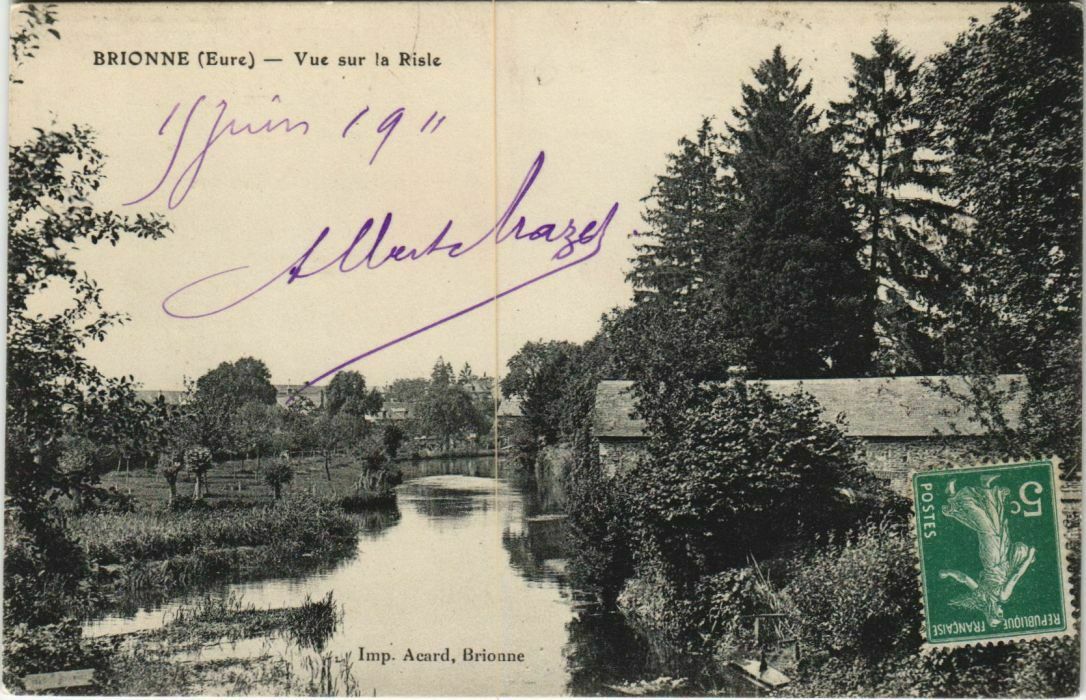 BRIONNE (Eure) — Vue sur la Risle
15 Juin 1911
Albert Mazel
5c
POSTES
REPUBLIQUE FRANÇAISE
Imp. Acard, Brionne